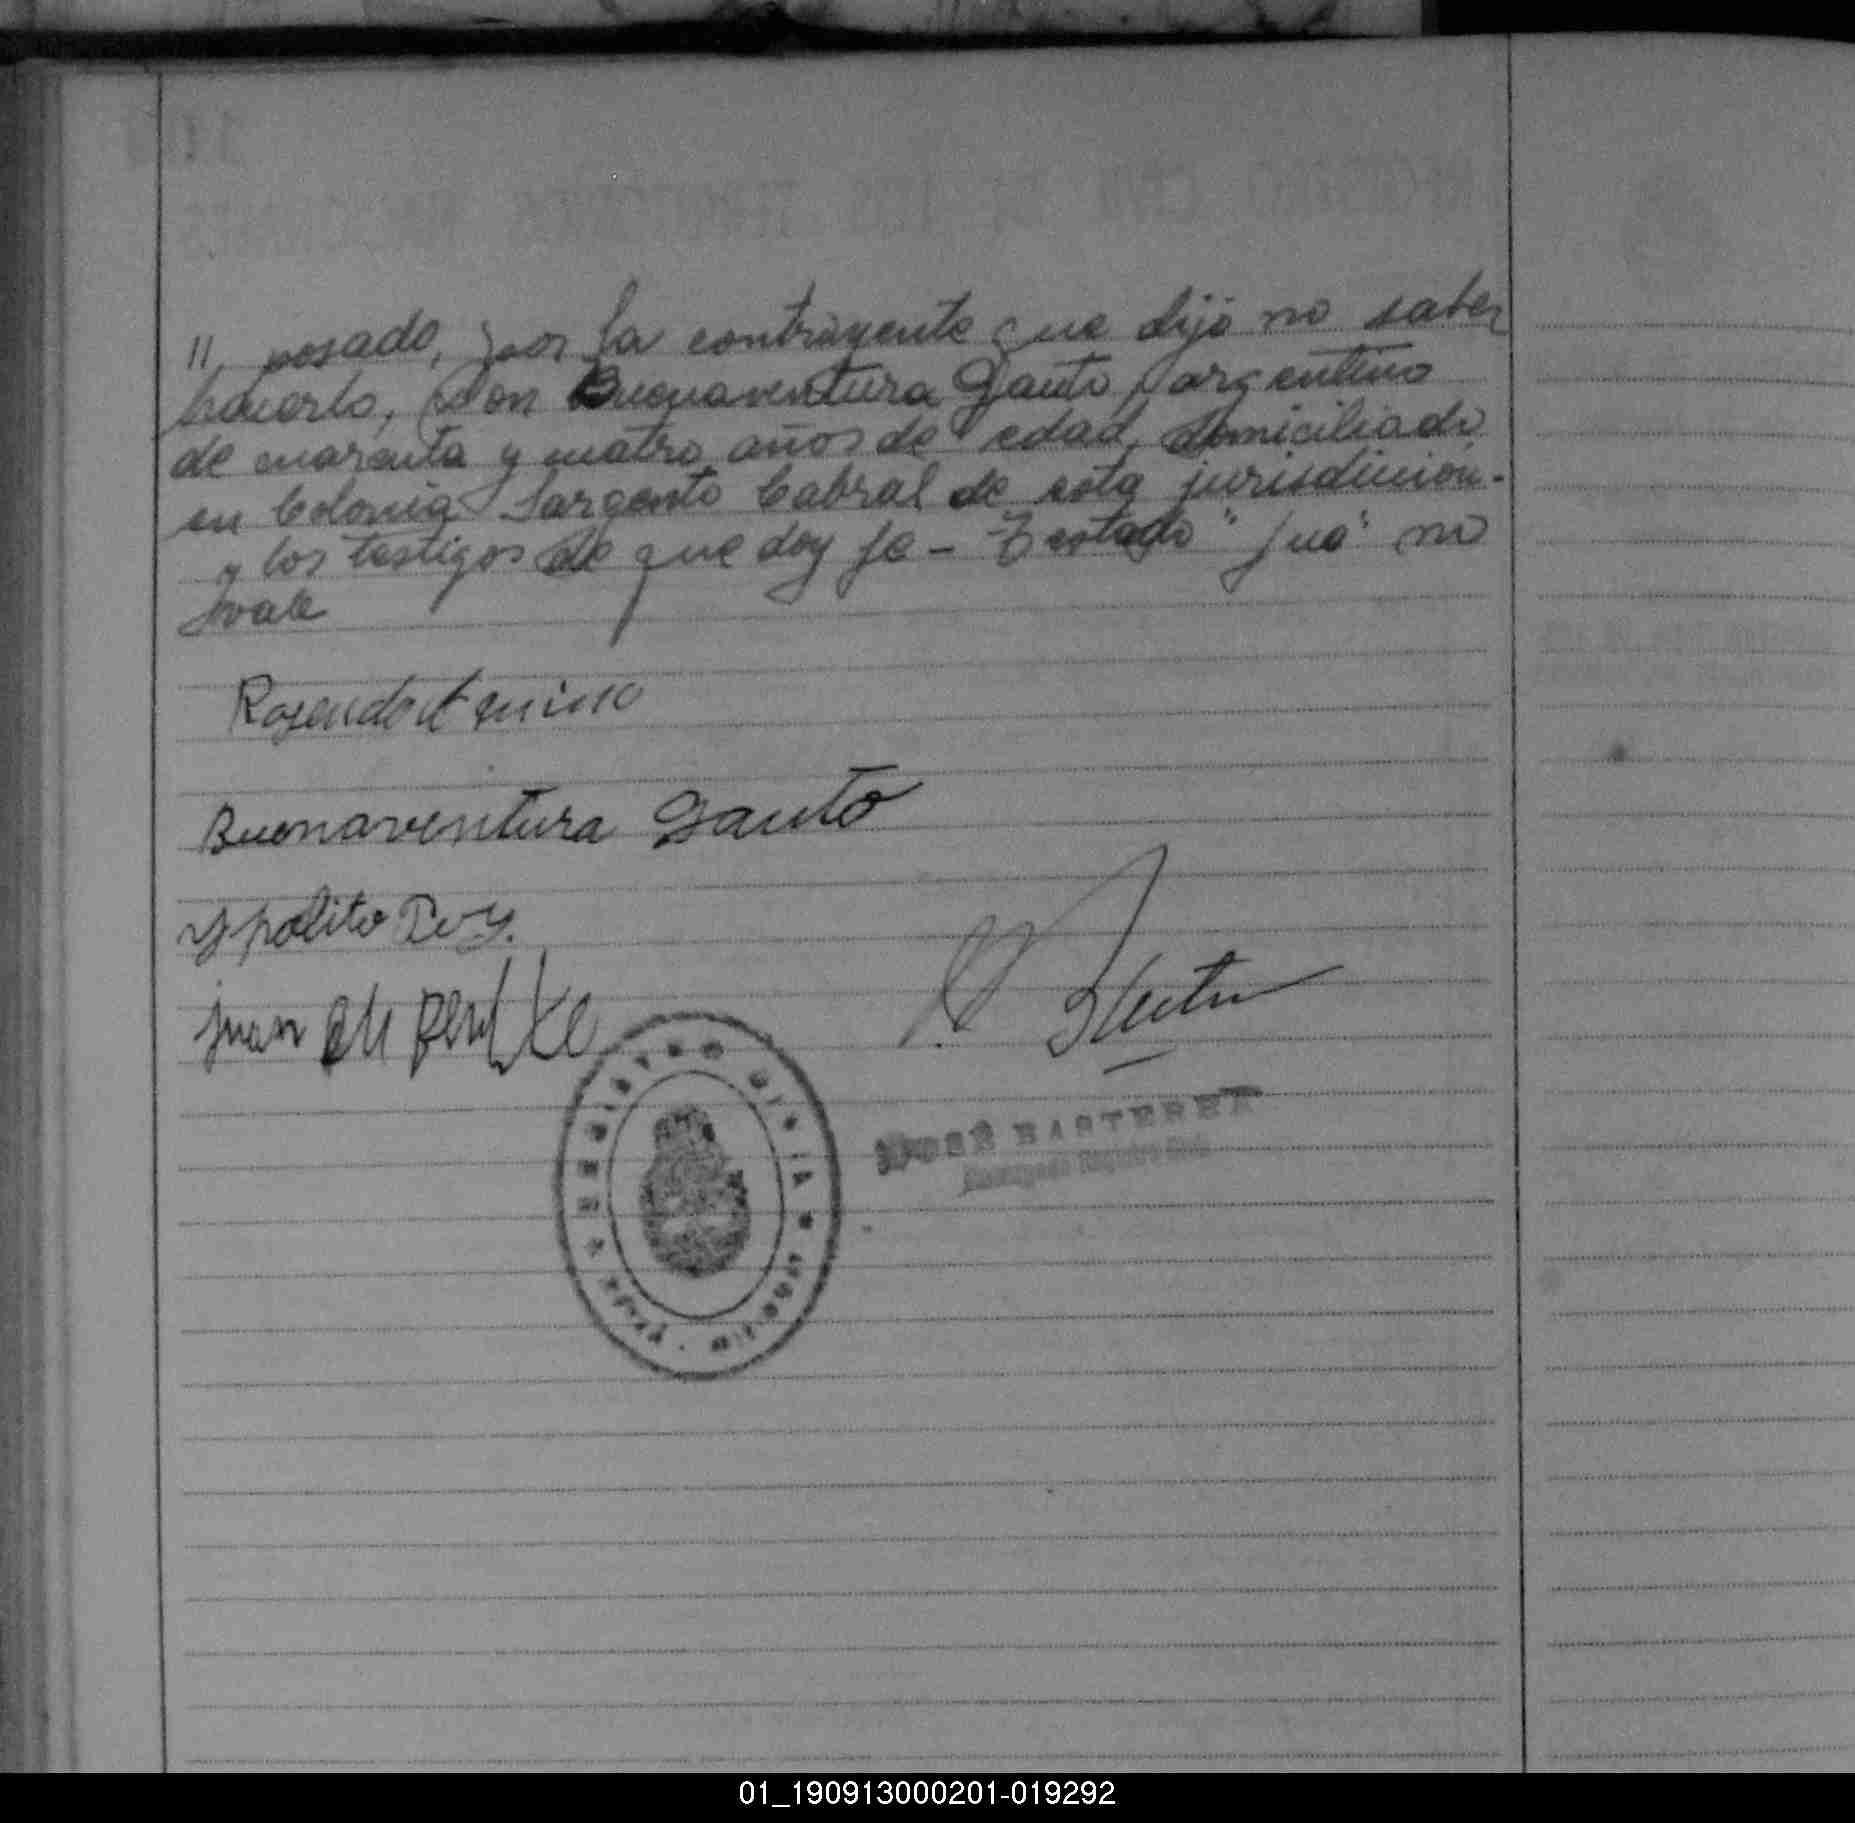 " posado, por la contrayente que dijo no saber
hacerlo, Don Buenaventura Gauto, argentino
de cuarenta y cuatro años de edad, domiciliado
en Colonia Sargento Cabral de esta jurisdiccion-
y los testigos de que doy fe - Testado "fue" no
vale
Rosendo Aquino
Buenaventura Gauto
Ypolito
Juan
JOSÉ BASTERRA
Encargado Registro Civil
01_190913000201-019292